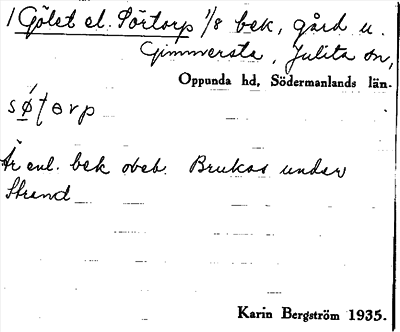 1 Gölet el. Sörtorp 1/8 bek, gård u.
Gimmersta, Julita sn,
Oppunda hd, Södermanlands län.
sǿʈɵrp
Är enl. bek obeb. Brukas under
Strand
Karin Bergström 1935.